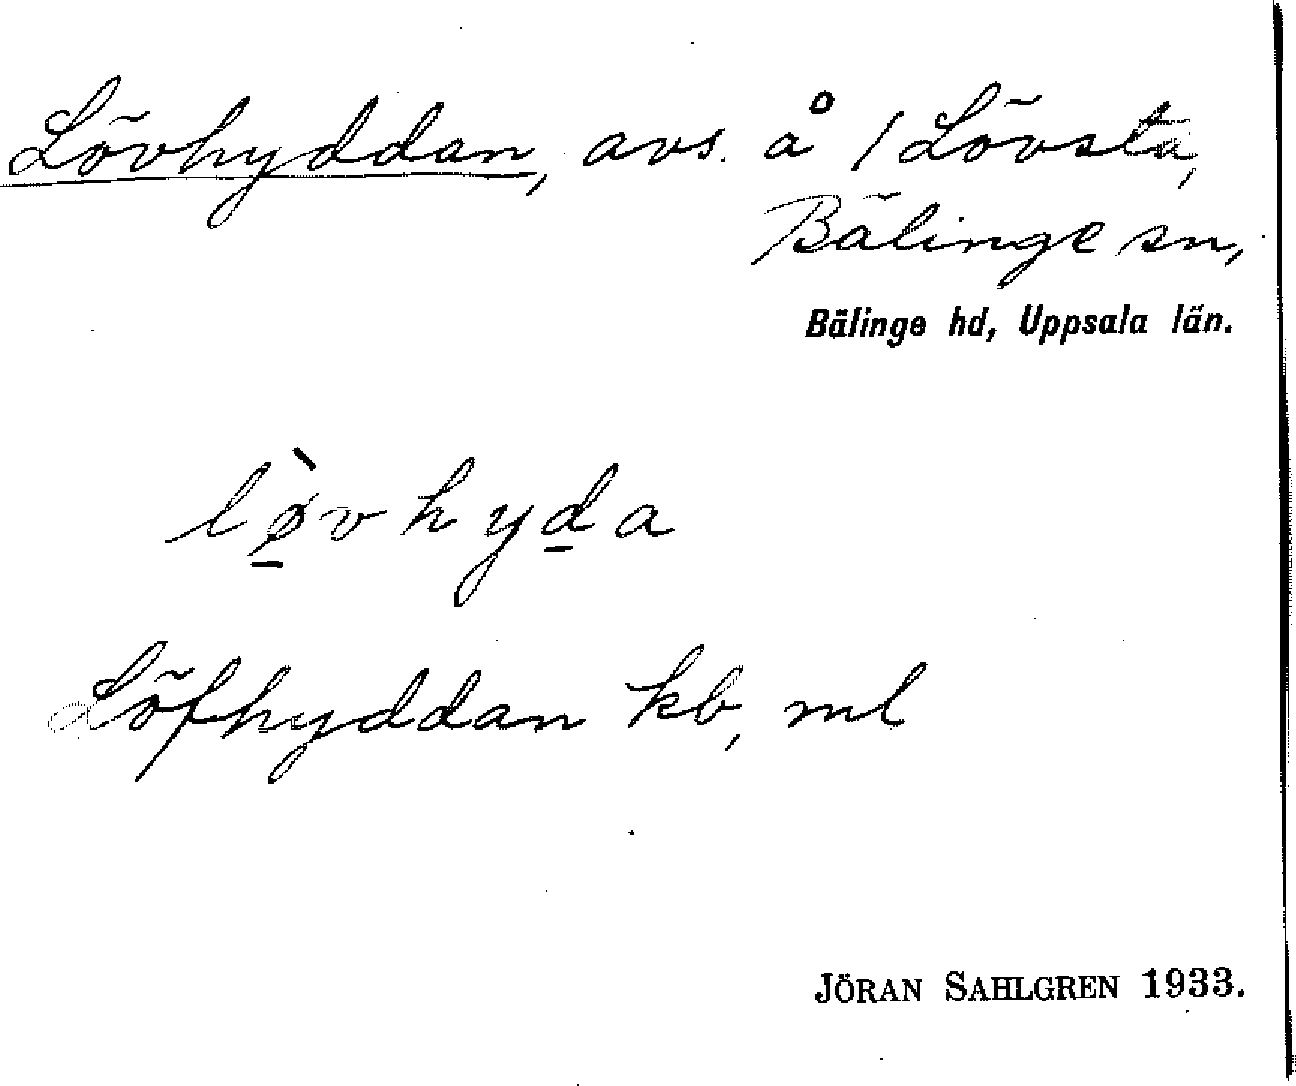 Lövhyddan, avs. å / Lövsta,
Bälinge sn,
Bälinge hd, Uppsala län.
lø̱̀vhyḏa
Löfhyddan kb, ml
JÖRAN SAHLGREN 1933.